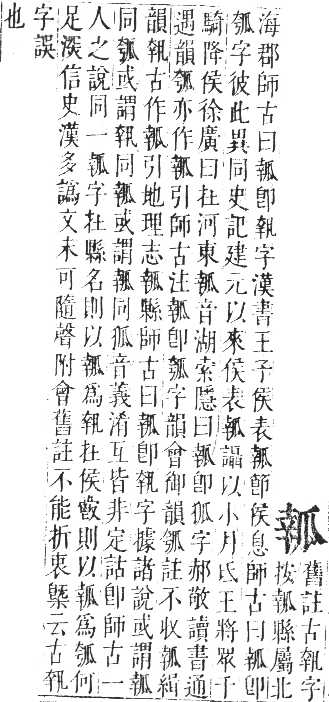 瓡
舊註古執字
按瓡縣屬北
海郡師古曰瓡卽執字漢書王子侯表瓡節侯息師古曰瓡卽
瓠字彼此異同史記建元以來侯表瓡讘以小月氏王將眾千
騎降侯徐廣曰在河東瓡音湖索隱曰瓡卽狐字郝敬讀書通
遇韻瓠亦作瓡引師古注瓡卽瓠字韻會御韻瓠註不收瓡緝
韻執古作瓡引地理志瓡縣師古曰瓡卽執字據諸說或謂瓡
同瓠或謂執同瓡或謂瓡同狐音義淆互皆非定詁卽師古一
人之說同一瓡字在縣名則以瓡為執在侯則以瓡為瓠何
足湥信史漢多譌文未可隨聲附會舊註不能折衷槩云古執
字誤
也